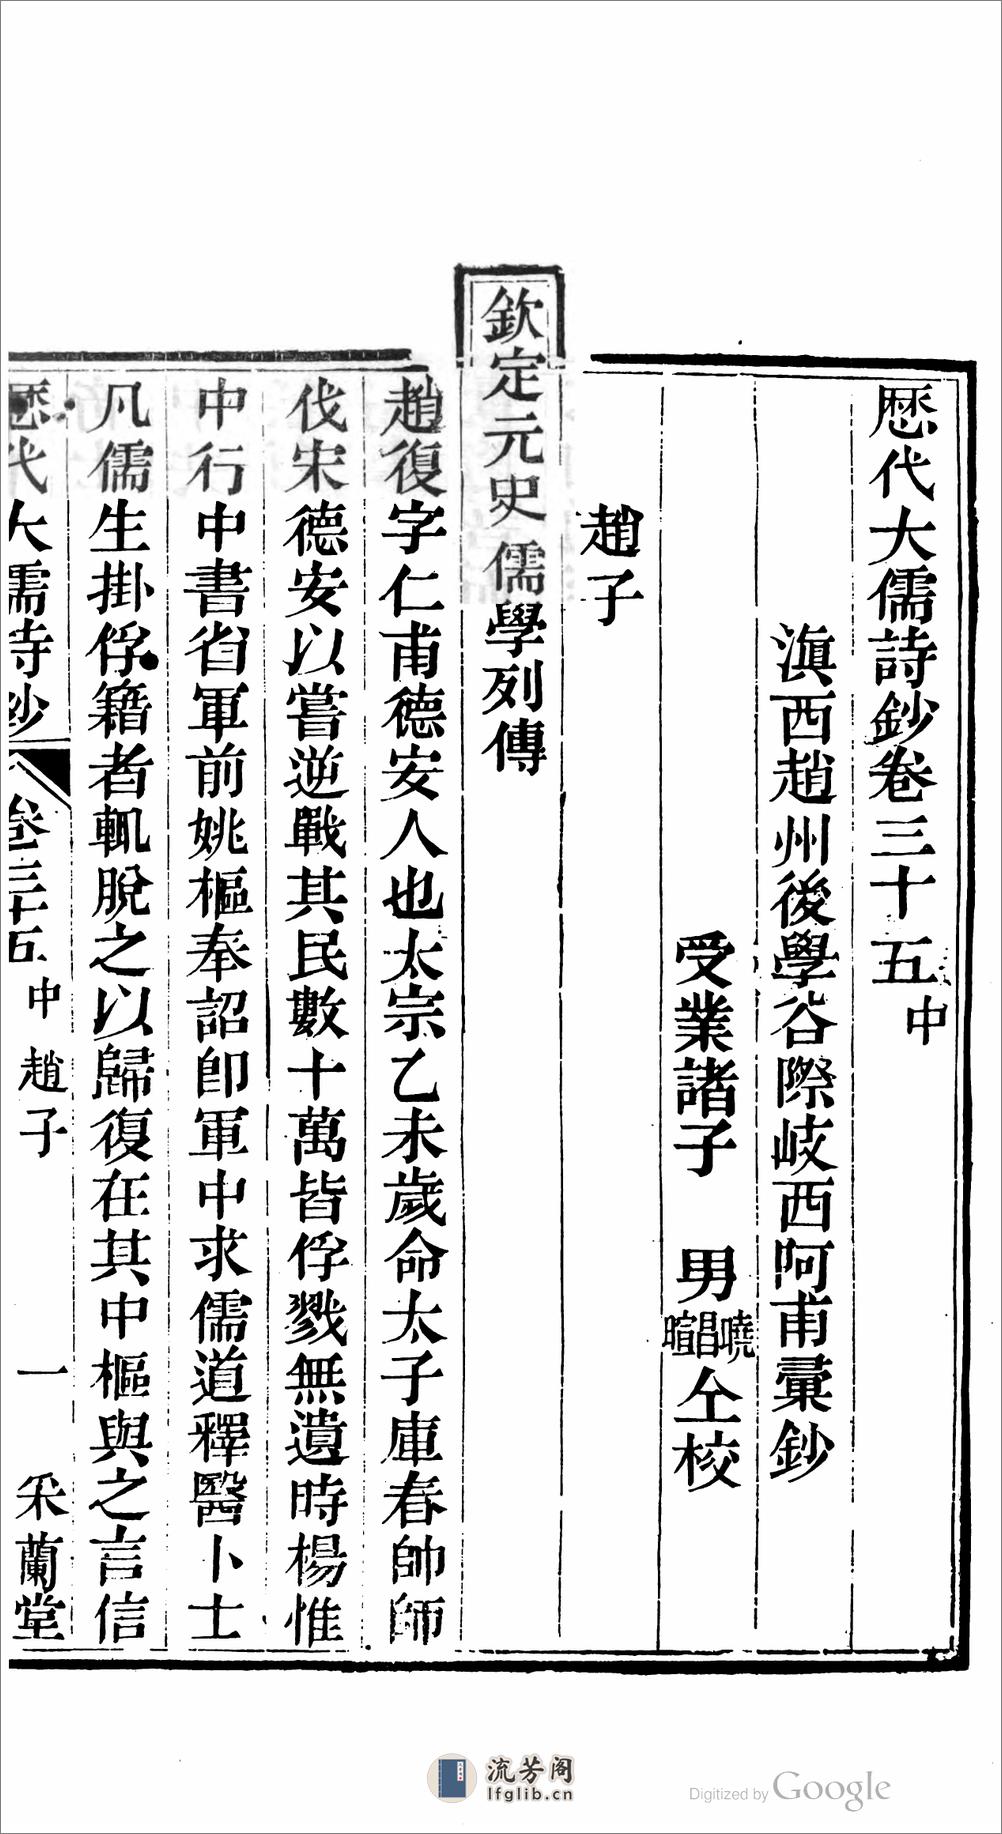 歷代大儒詩鈔卷三十五中
滇西趙州後學谷際岐西阿甫彚鈔
受業諸子 男曉昌暄仝校
趙子
欽定元史儒學列傳
趙復字仁甫德安人也太宗乙未歲命太子庫春帥師
伐宋德安以嘗逆戰其民數十萬皆俘戮無遺時楊惟
中行中書省軍前姚樞奉詔卽軍中求儒道釋醫卜士
凡儒生掛俘籍者輒脫之以歸復在其中樞與之言信
歷代大儒詩鈔 卷三十五 中 趙子 一 采蘭堂
流芳阁
lfglib.cn
Digitized by Google